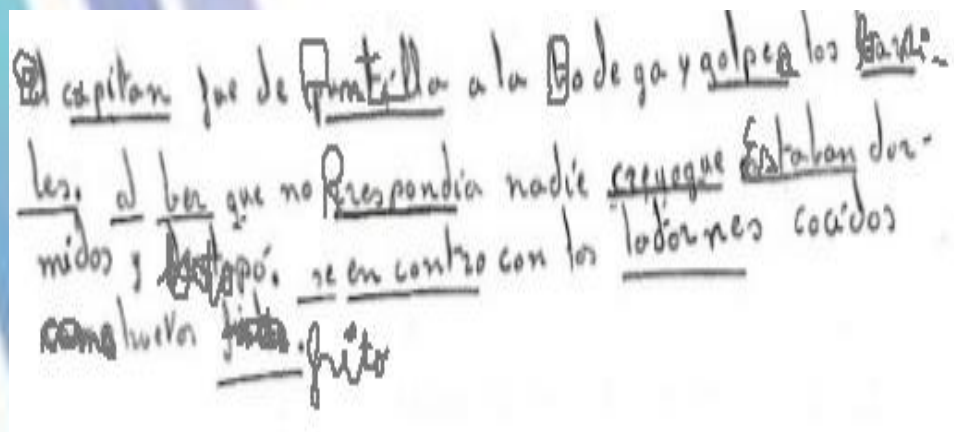 El capitan fue de Puntilla a la Bo de ga y golpea los barri-
les. al ber que no Rrespondia nadie creyoque Estaban dor-
midos y destapó. se en contro con los ladornes cocidos
como huevos frito